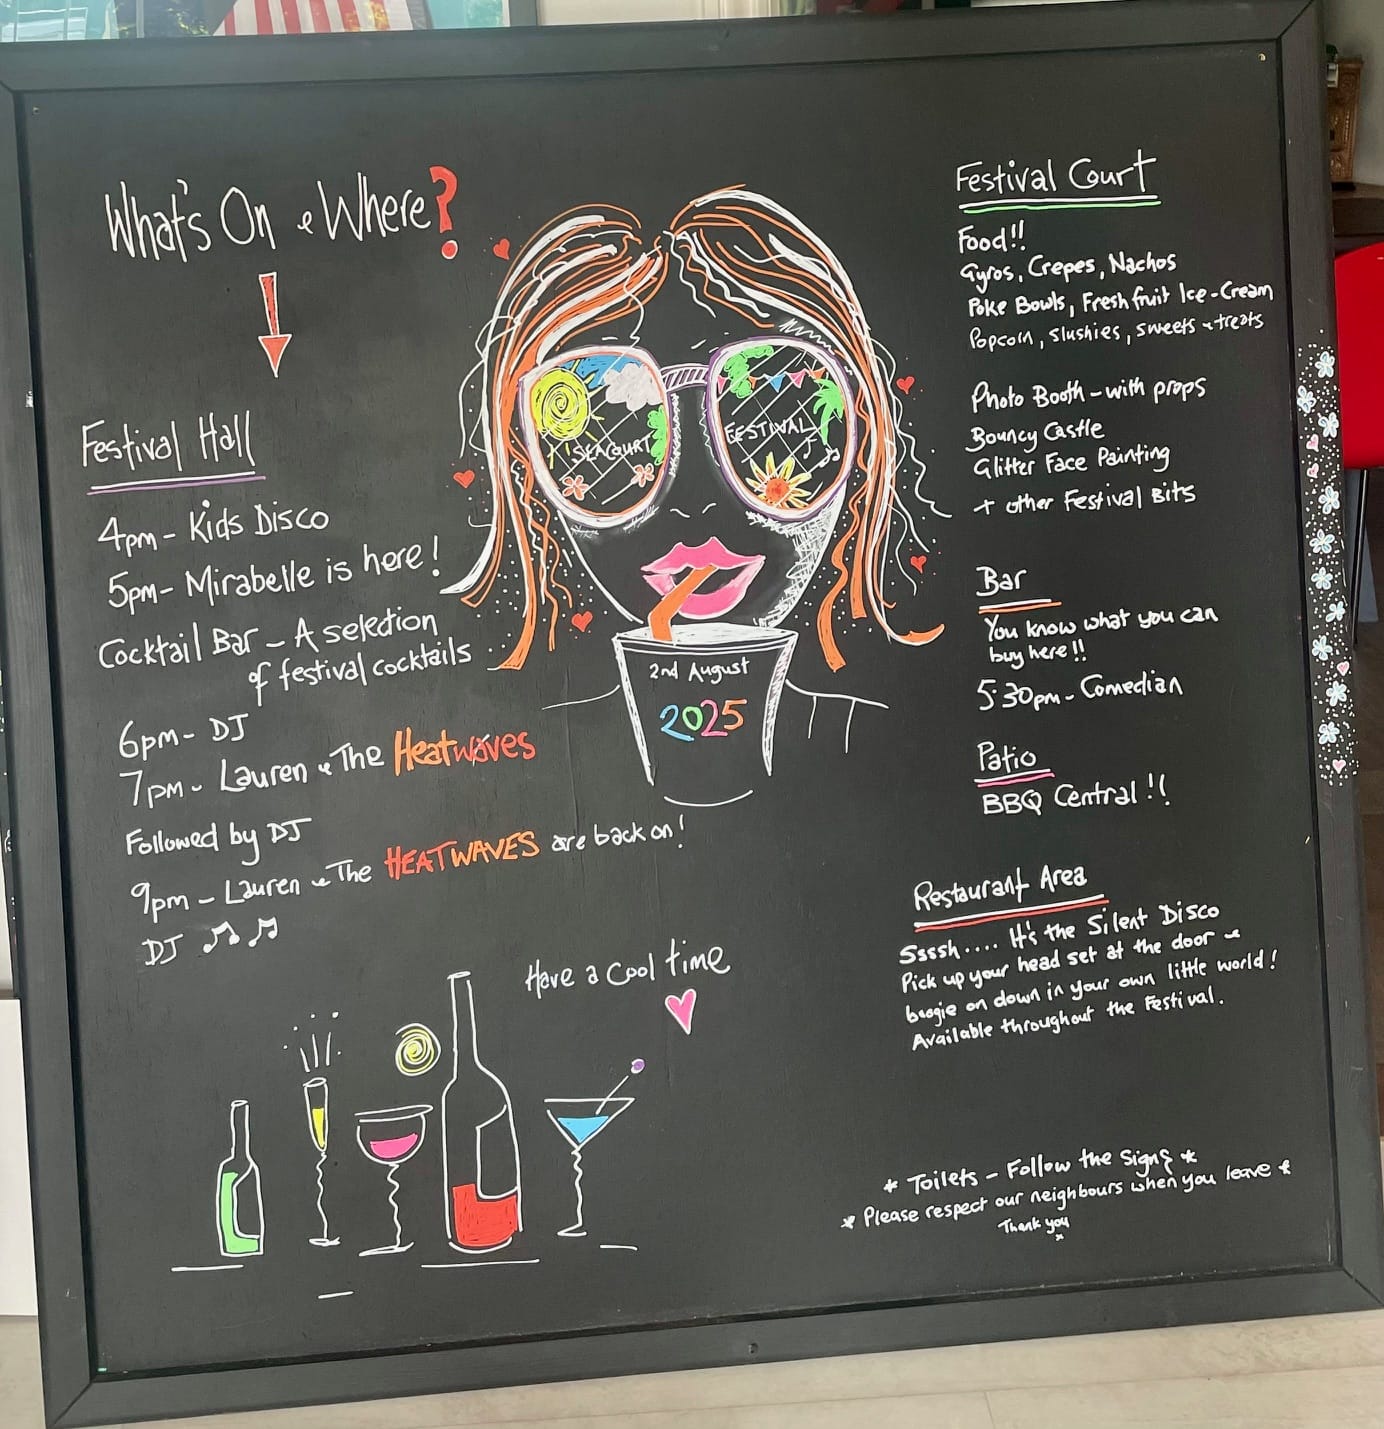 What's On & Where?
Festival Hall
4pm - Kids Disco
5pm - Mirabelle is here!
Cocktail Bar - A selection
of festival cocktails
6pm - DJ
7pm - Lauren & The Heatwaves
Followed by DJ
9pm - Lauren & The HEATWAVES are back on!
DJ
Have a Cool time
SEACOURT
FESTIVAL
2nd August
2025
Festival Court
Food!!
Gyros, Crepes, Nachos
Poke Bowls, Fresh fruit Ice-Cream
Popcorn, Slushies, sweets & treats
Photo Booth - with props
Bouncy Castle
Glitter Face Painting
+ other Festival Bits
Bar
You know what you can
buy here!!
5:30pm - Comedian
Patio
BBQ Central!!
Restaurant Area
Ssssh.... It's the Silent Disco
Pick up your head set at the door &
boogie on down in your own little world!
Available throughout the Festival.
* Toilets - Follow the Signs *
* Please respect our neighbours when you leave *
Thank you
x